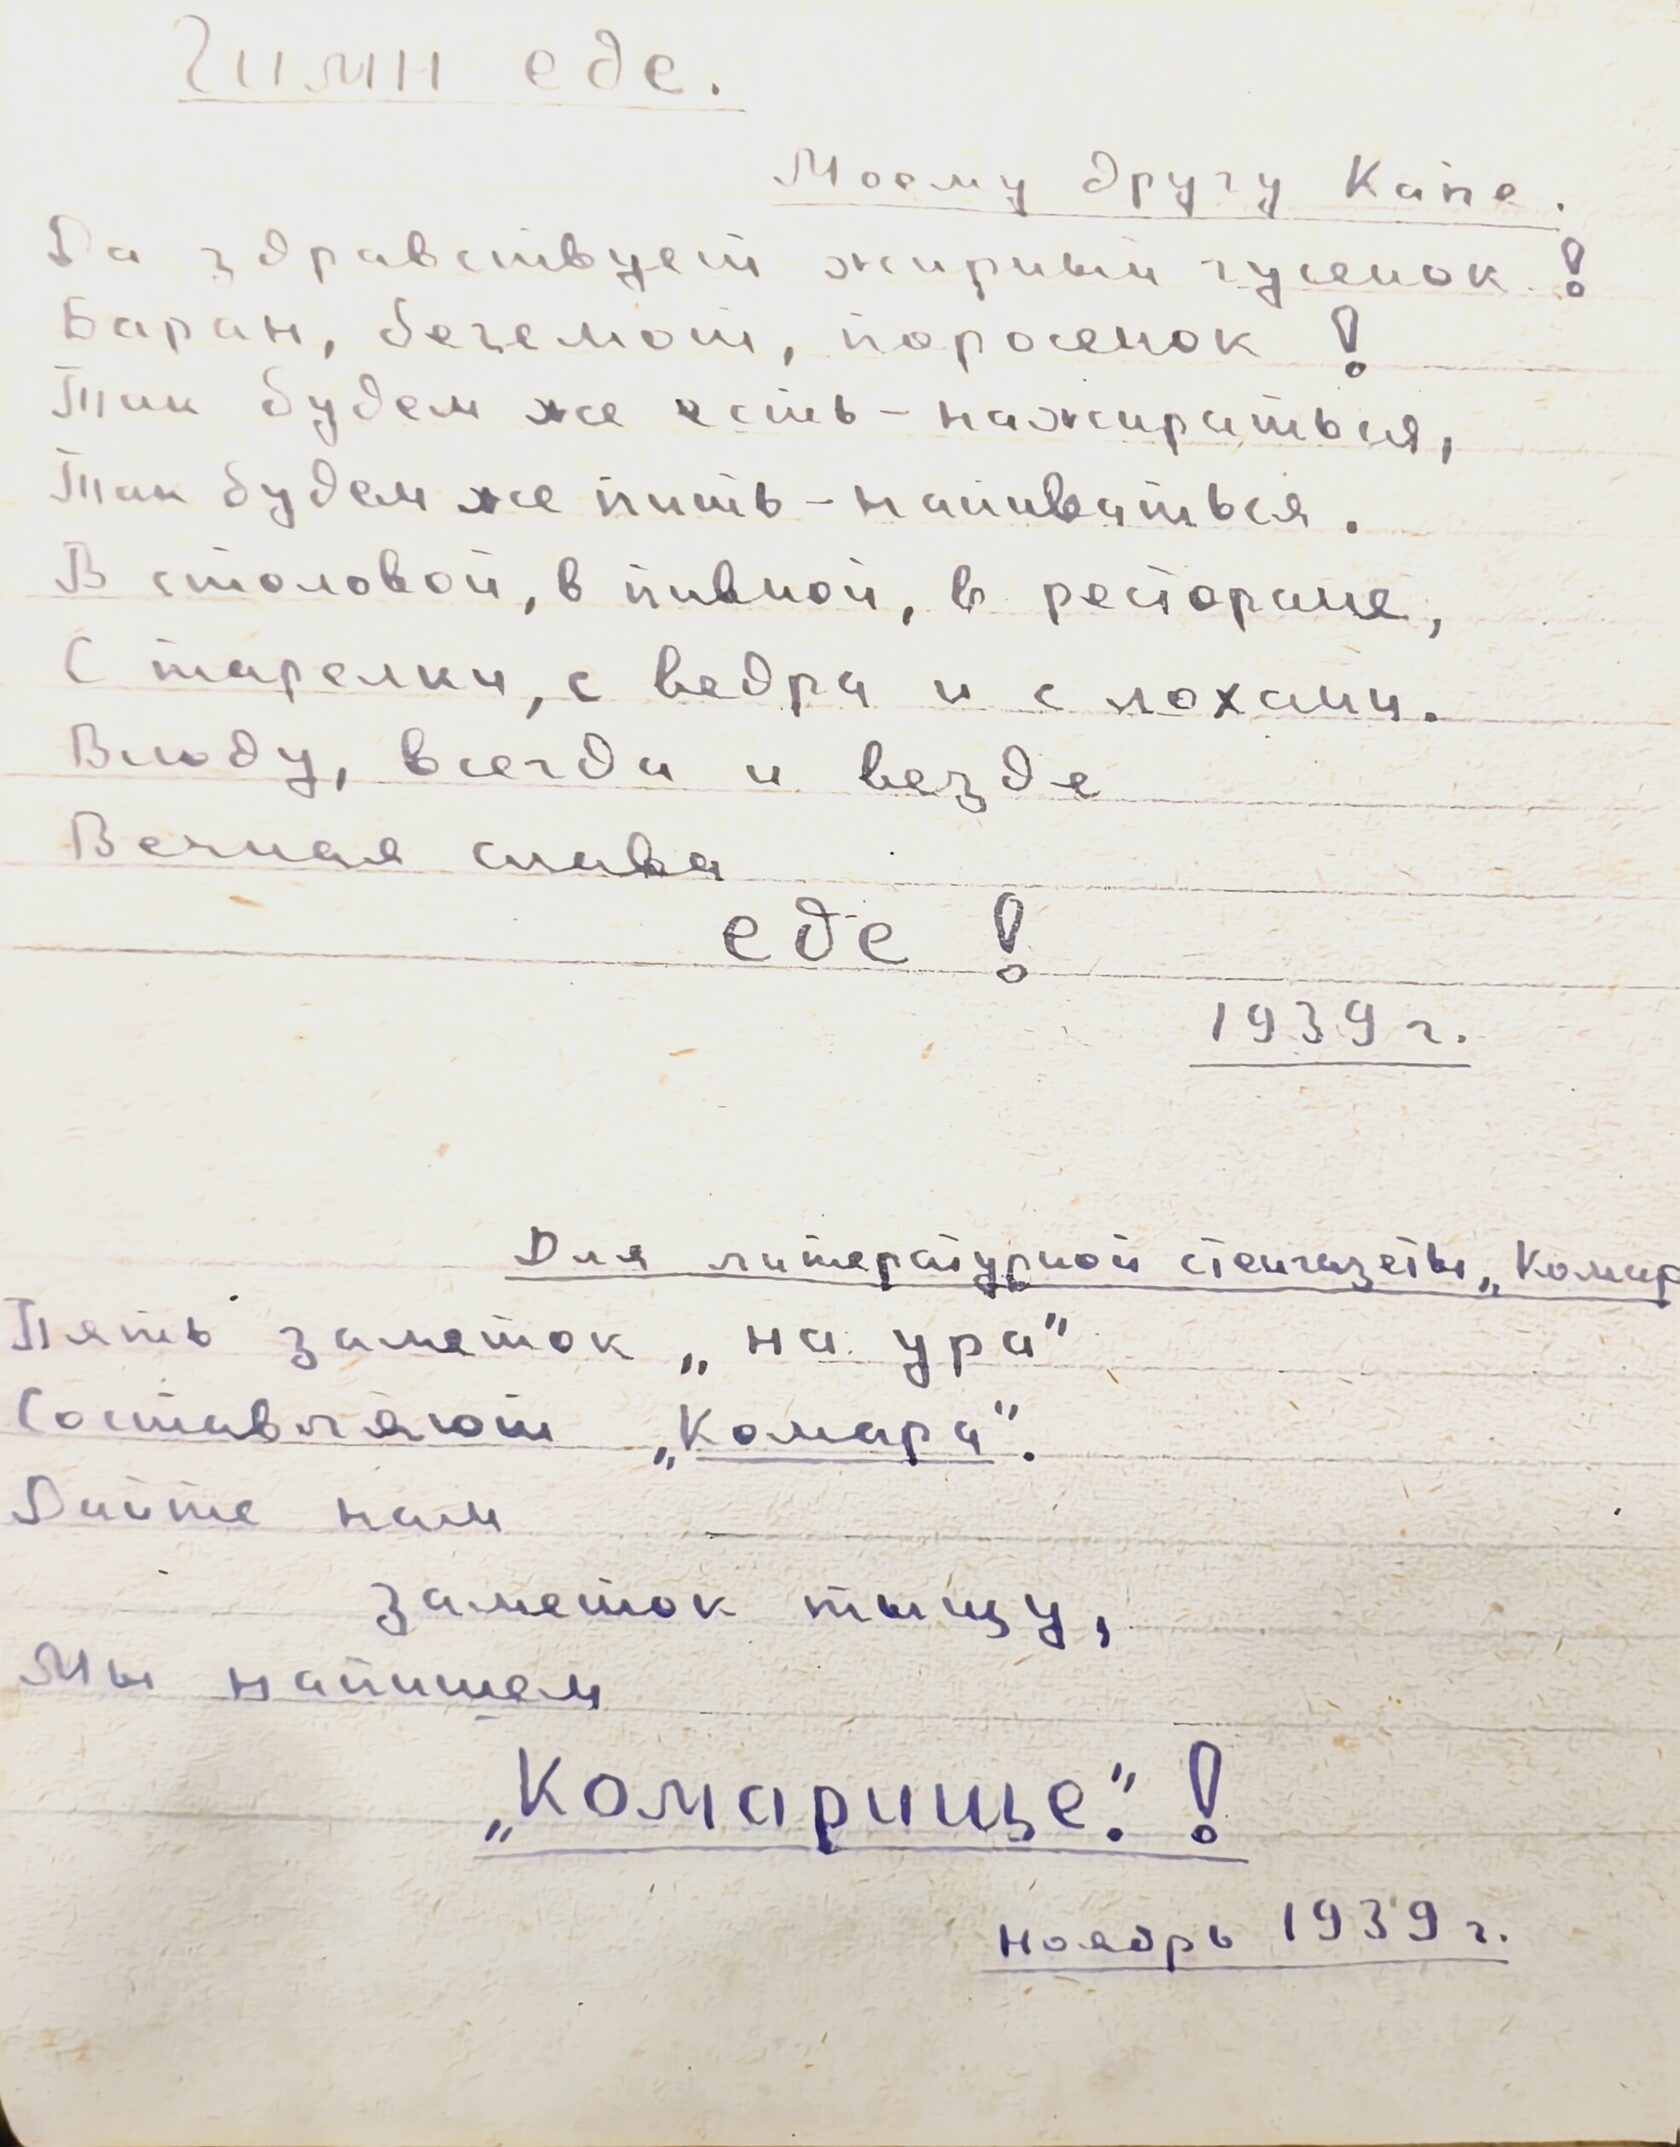 Гимн еде.
Моему другу Капе.
Да здравствует жирный гусенок!
Баран, бегемот, поросенок!
Так будем же есть - нажираться,
Так будем же пить - напиваться.
В столовой, в пивной, в ресторане,
С тарелки, с ведра и с лохани.
Всюду, всегда и везде
Вечная слава
еде!
1939 г.
Для литературной стенгазеты „Комар
Пять заметок „на ура"
Составляют „Комара".
Дайте нам
заметок тыщу,
Мы напишем
„Комарище".!
ноябрь 1939 г.